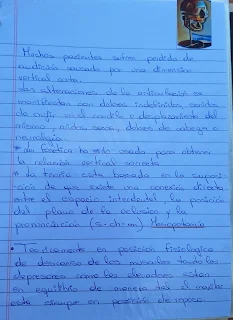 Muchos pacientes sufren perdida de
audición causada por una dimensión
vertical corta.
Las alteraciones de la articulación se
manifiestan con dolores indefinidos, ruidos
de oído en el condilo o desplazamiento del
mismo, oídos secos, dolores de cabeza o
neuralgia
* La fonética ha sido usada para obtener
la relación vertical correcta
* La teoría esta basada en la suposi-
ción de que existe una conexión directa
entre el espacio interdental, la posición
del plano de la oclusión y la
pronunciación (s-ch-m) Mesopotamio
* Tecnicamente en posición fisiologica
de descanso de los musculos tanto los
depresores como los elevadores estan
en equilibrio de manera tal el maxilar
esta siempre en posición de reposo.